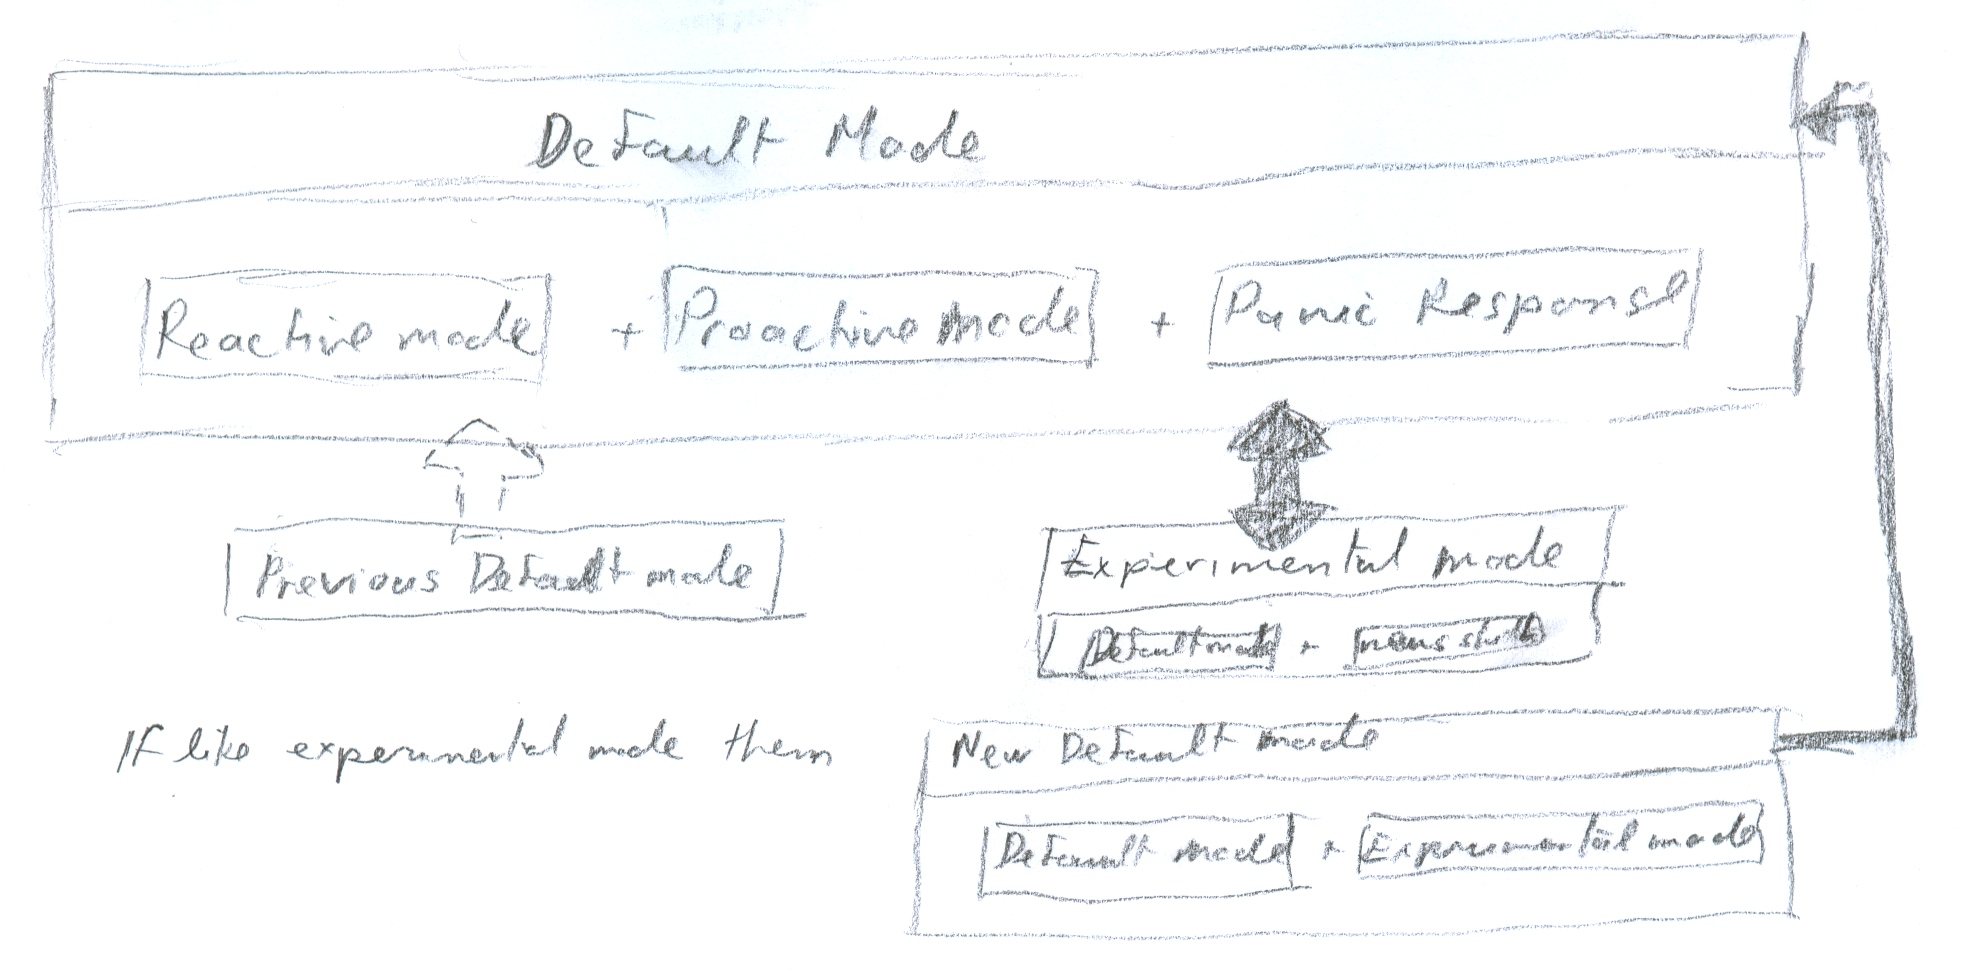 Default Mode
Reactive mode + Proactive mode + Panic Response
Previous Default mode
Experimental mode
Default mode +
If like experimental mode them
New Default mode
Default mode + Experimental mode